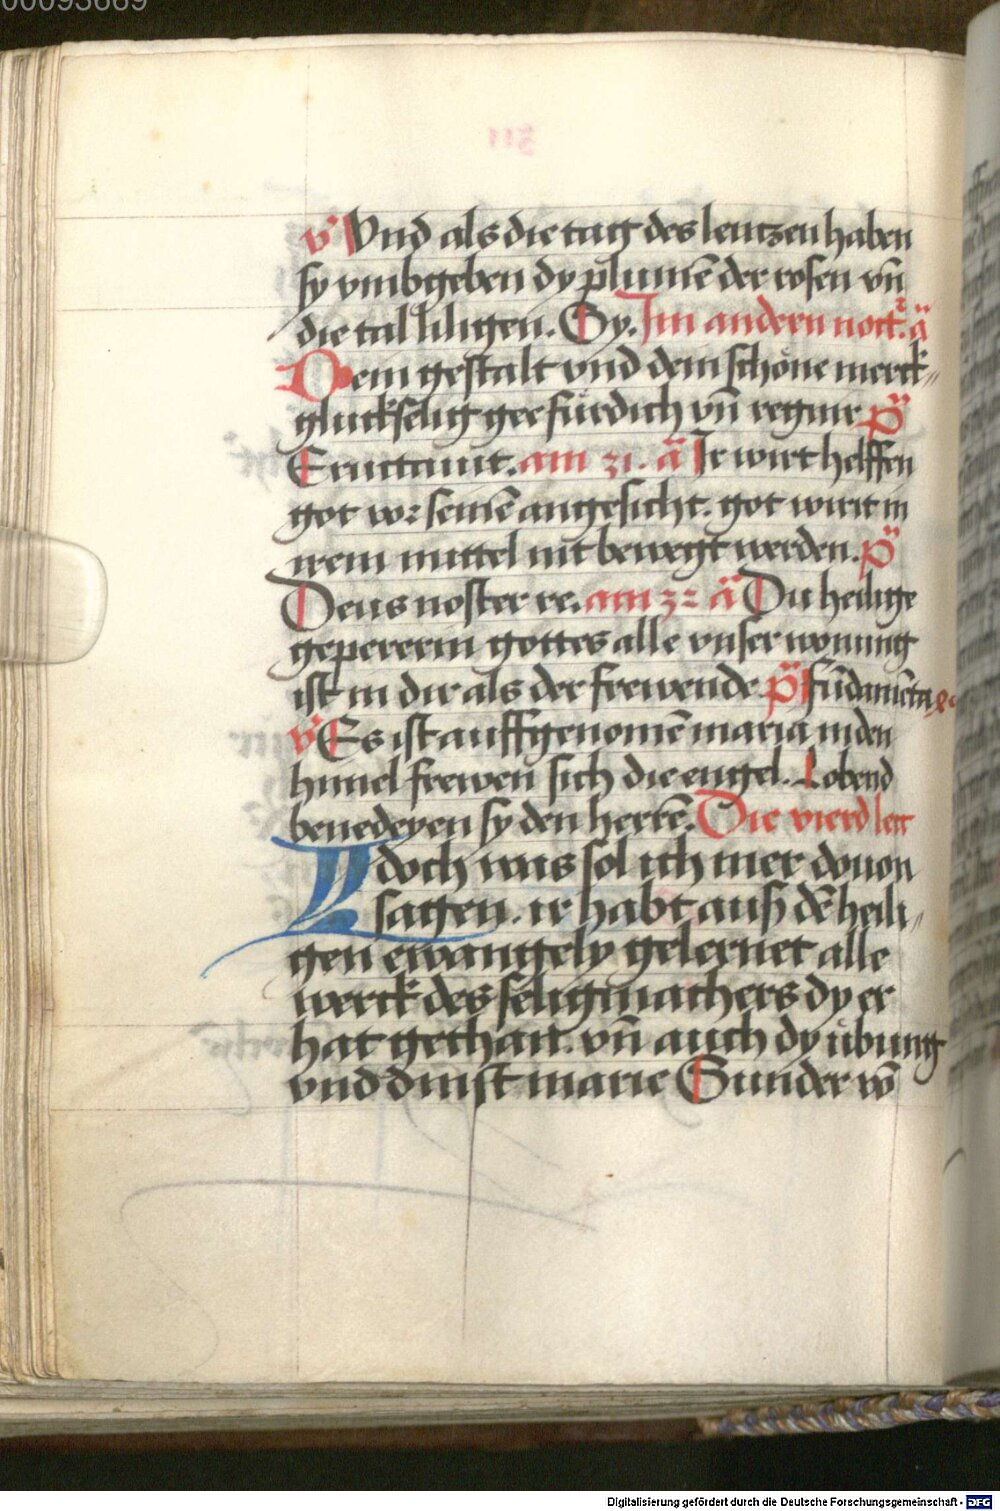 00093669
v̾ Vnd als die tag des lentzen haben
sy vmbgeben dy plumē der rosen vn̄
die tal liligen. Sy. Im andern noct᷑. ā
Dein gestalt vnd dein schöne merck
gluckselig gee fürdich vn̄ regnir p̄
Eructauit. am 31. ā Ir wirt helffen
got vor seinē angesicht. got wirt in
irem mittel nit bewegt werden. p̄
Deus noster re. am 32 ā Du heilige
gepererin gottes alle vnser wonung
ist in dir als der frewende. p̄ fūdamēta
v̾ Es ist auffgenomē maria in den
himel frewen sich die engel. Lobend
benedeyen sy den herrē. Die vierd lec
Idoch was sol ich mer douon
sagen. ir habt auß dē heili
gen ewangely gelernet alle
werck des seligmachers dy er
hat gethan. vn̄ auch dy übung
vnd dinst marie Sunder
Digitalisierung gefördert durch die Deutsche Forschungsgemeinschaft - DFG